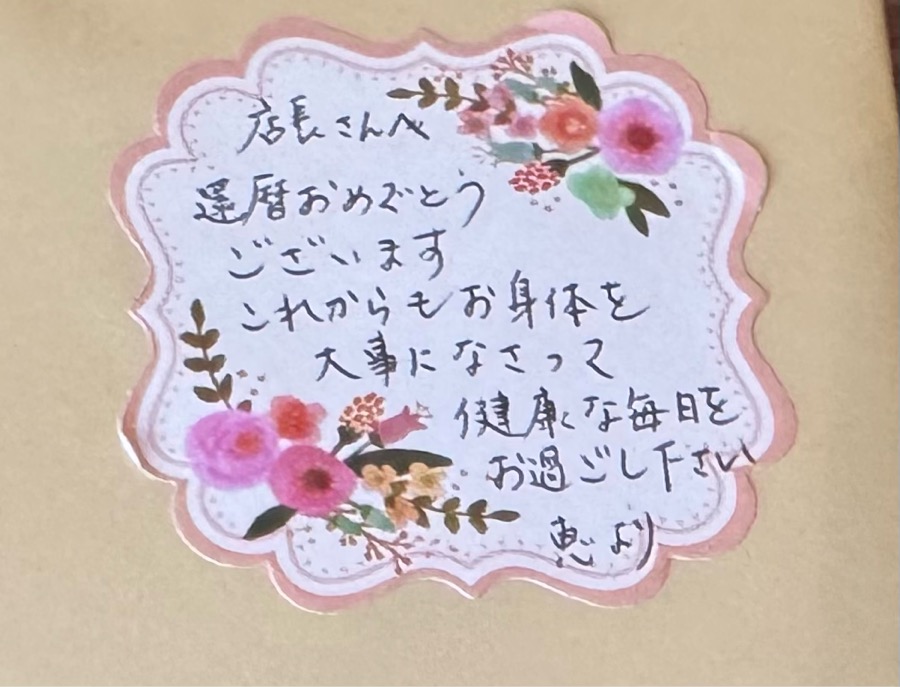 店長さんへ
還暦おめでとう
ございます
これからもお身体を
大事になさって
健康な毎日を
お過ごし下さい
恵より